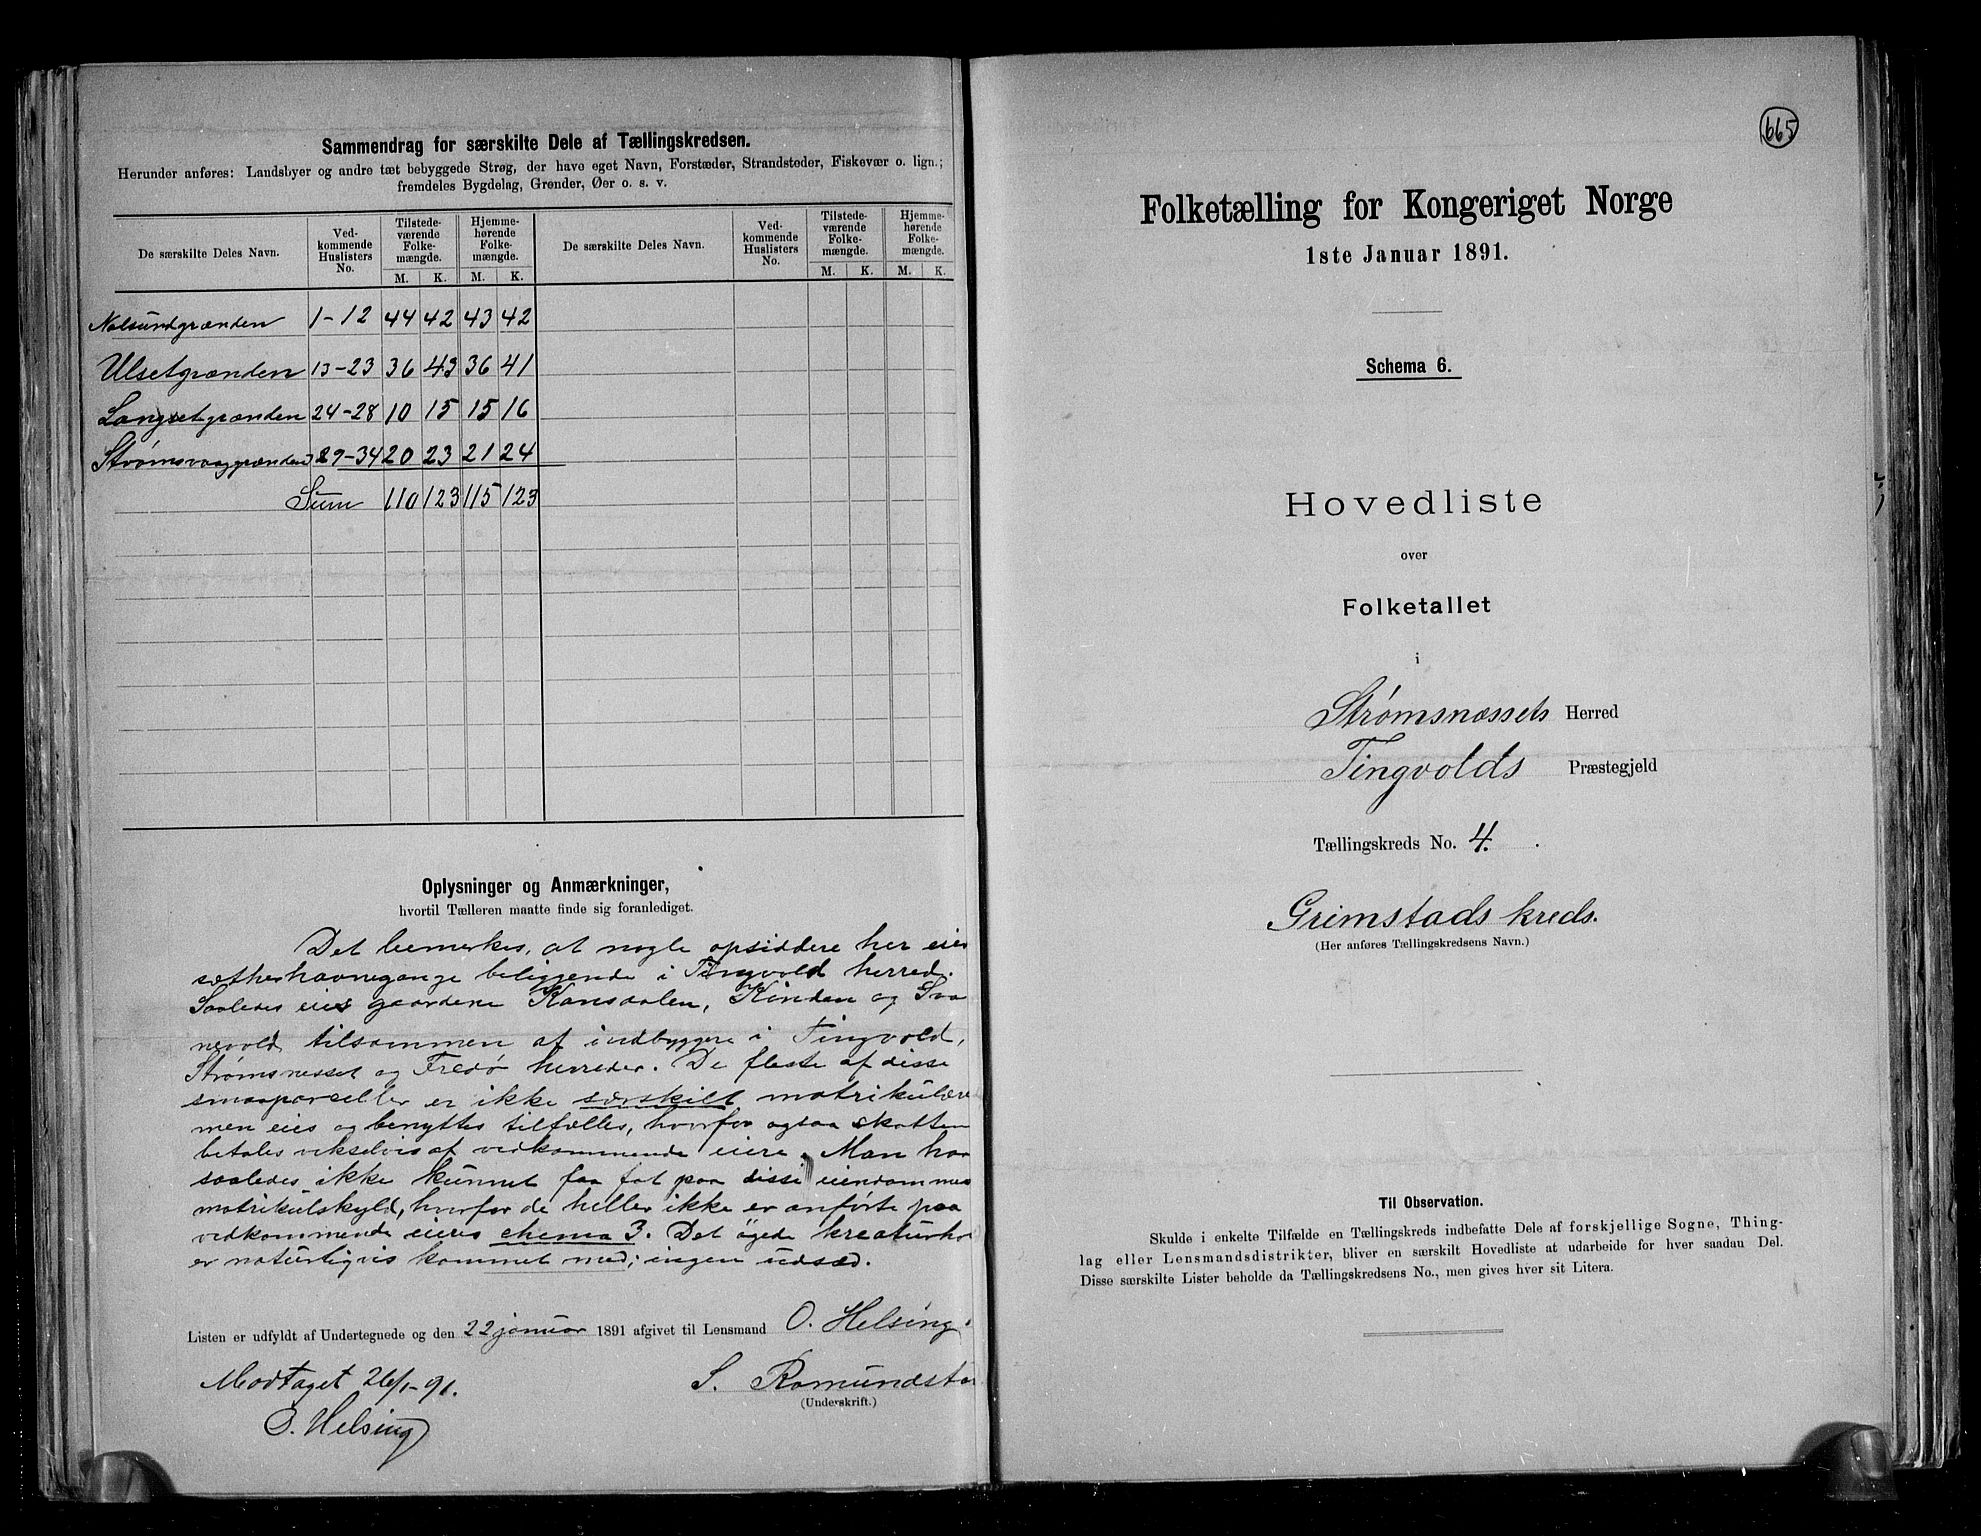 Sammendrag for særskilte Dele af Tællingskredsen.
Herunder anføres: Landsbyer og andre tæt bebyggede Strøg, der have eget Navn, Forstæder, Strandsteder, Fiskevær o. lign.;
fremdeles Bygdelag, Grender, Øer o. s. v.
De særskilte Deles Navn. Ved-kommende Huslisters No. Tilstede-værende Folke-mængde. Hjemme-hørende Folke-mængde. De særskilte Deles Navn. Ved-kommende Huslisters No. Tilstede-værende Folke-mængde. Hjemme-hørende Folke-mængde.
M. K. M. K. M. K. M. K.
Nalsundgrænden 1-12 44 42 43 42
Ulsetgrænden 13-23 36 43 36 41
Langsetgrænden 24-28 10 15 15 16
Strømsvaaggrænden 29-34 20 23 21 24
Sum 110 123 115 123
Oplysninger og Anmærkninger,
hvortil Tælleren maatte finde sig foranlediget.
Det bemerkes, at nogle opsiddere her eier
sætherhavnegange beliggende i Tingvold herred.
Saaledes eies gaardene Kansdalen, Kinden og Sva
nevold tilsammen af indbyggere i Tingvold,
Strømsnesset og Fredø herreder. De fleste af disse
smaaparceller er ikke særskilt matrikulære
men eies og benyttes tilfælles, hvorfor ogsaa skatten
betales vekselvis af vedkommende eiere. Man har
saaledes ikke kunnet faa fat paa disse eiendommes
matrikulskyld, hvorfor de heller ikke er anførte paa
vedkommende eieres chema 3. Det øgede kreaturho
er naturligvis kommet med; ingen udsæd.
Listen er udfyldt af Undertegnede og den 22 januar 1891 afgivet til Lensmand O. Helsing.
Modtaget 26/1-91.
S. Romundsta
(Underskrift.)
O. Helsing
665
Folketælling for Kongeriget Norge
1ste Januar 1891.
Schema 6.
Hovedliste
over
Folketallet
i
Strømsnæssets Herred
Tingvolds Præstegjeld
Tællingskreds No. 4.
Grimstads kreds.
(Her anføres Tællingskredsens Navn.)
Til Observation.
Skulde i enkelte Tilfælde en Tællingskreds indbefatte Dele af forskjellige Sogne, Thing-
lag eller Lensmandsdistrikter, bliver en særskilt Hovedliste at udarbeide for hver saadan Del.
Disse særskilte Lister beholde da Tællingskredsens No., men gives hver sit Litera.